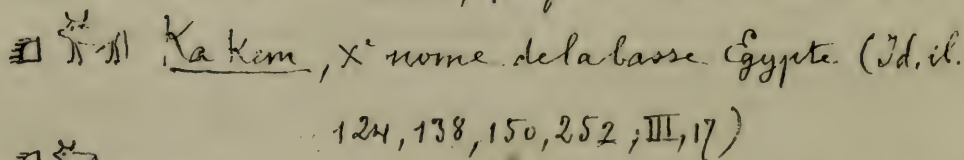 Ka Kem, Xe nome de la basse Égypte. (Id. il.
124, 138, 150, 252; III, 17)